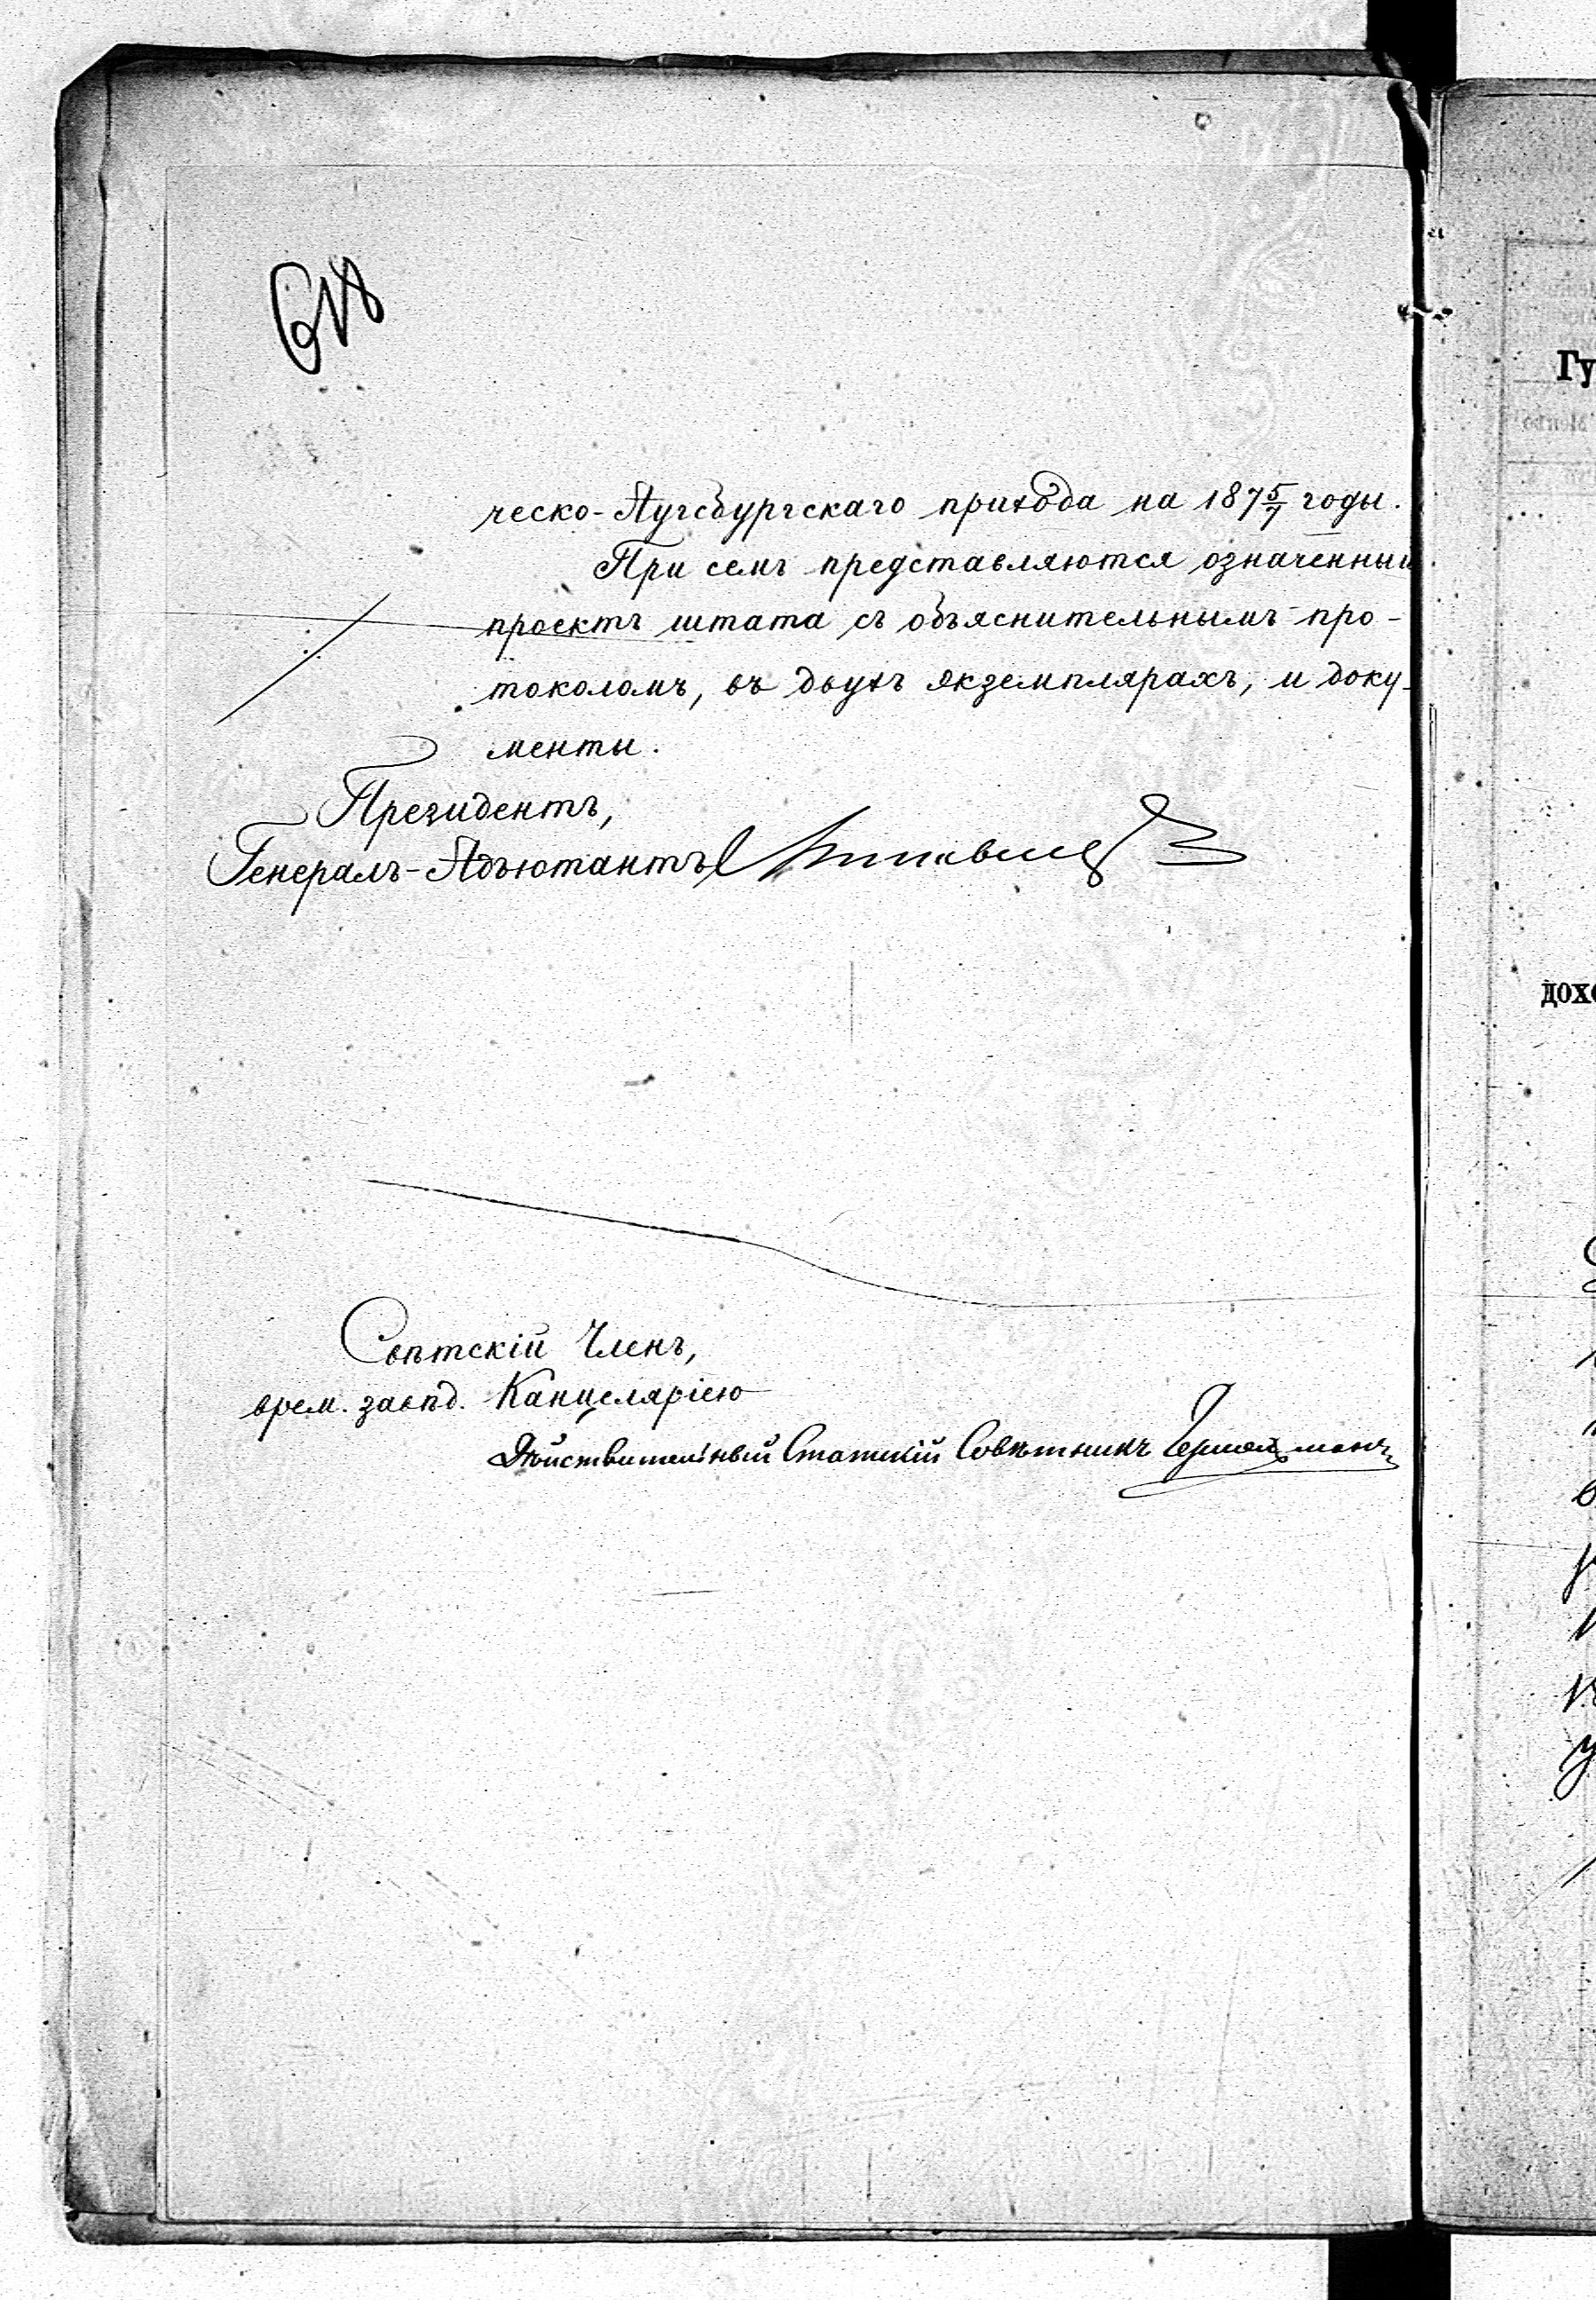 ческо-Аугсбургскаго прихода на 187 5/7 годы.
При семъ представляются означенный
проектъ штата съ объяснительнымъ про-
токоломъ, въ двухъ экземплярахъ, и доку-
менты.
Президентъ,
Генералъ-Адъютантъ
Свѣтскій Членъ,
врем. завѣд. Канцеляріею
Дѣйствительный Статскій Совѣтникъ
Гу
дох